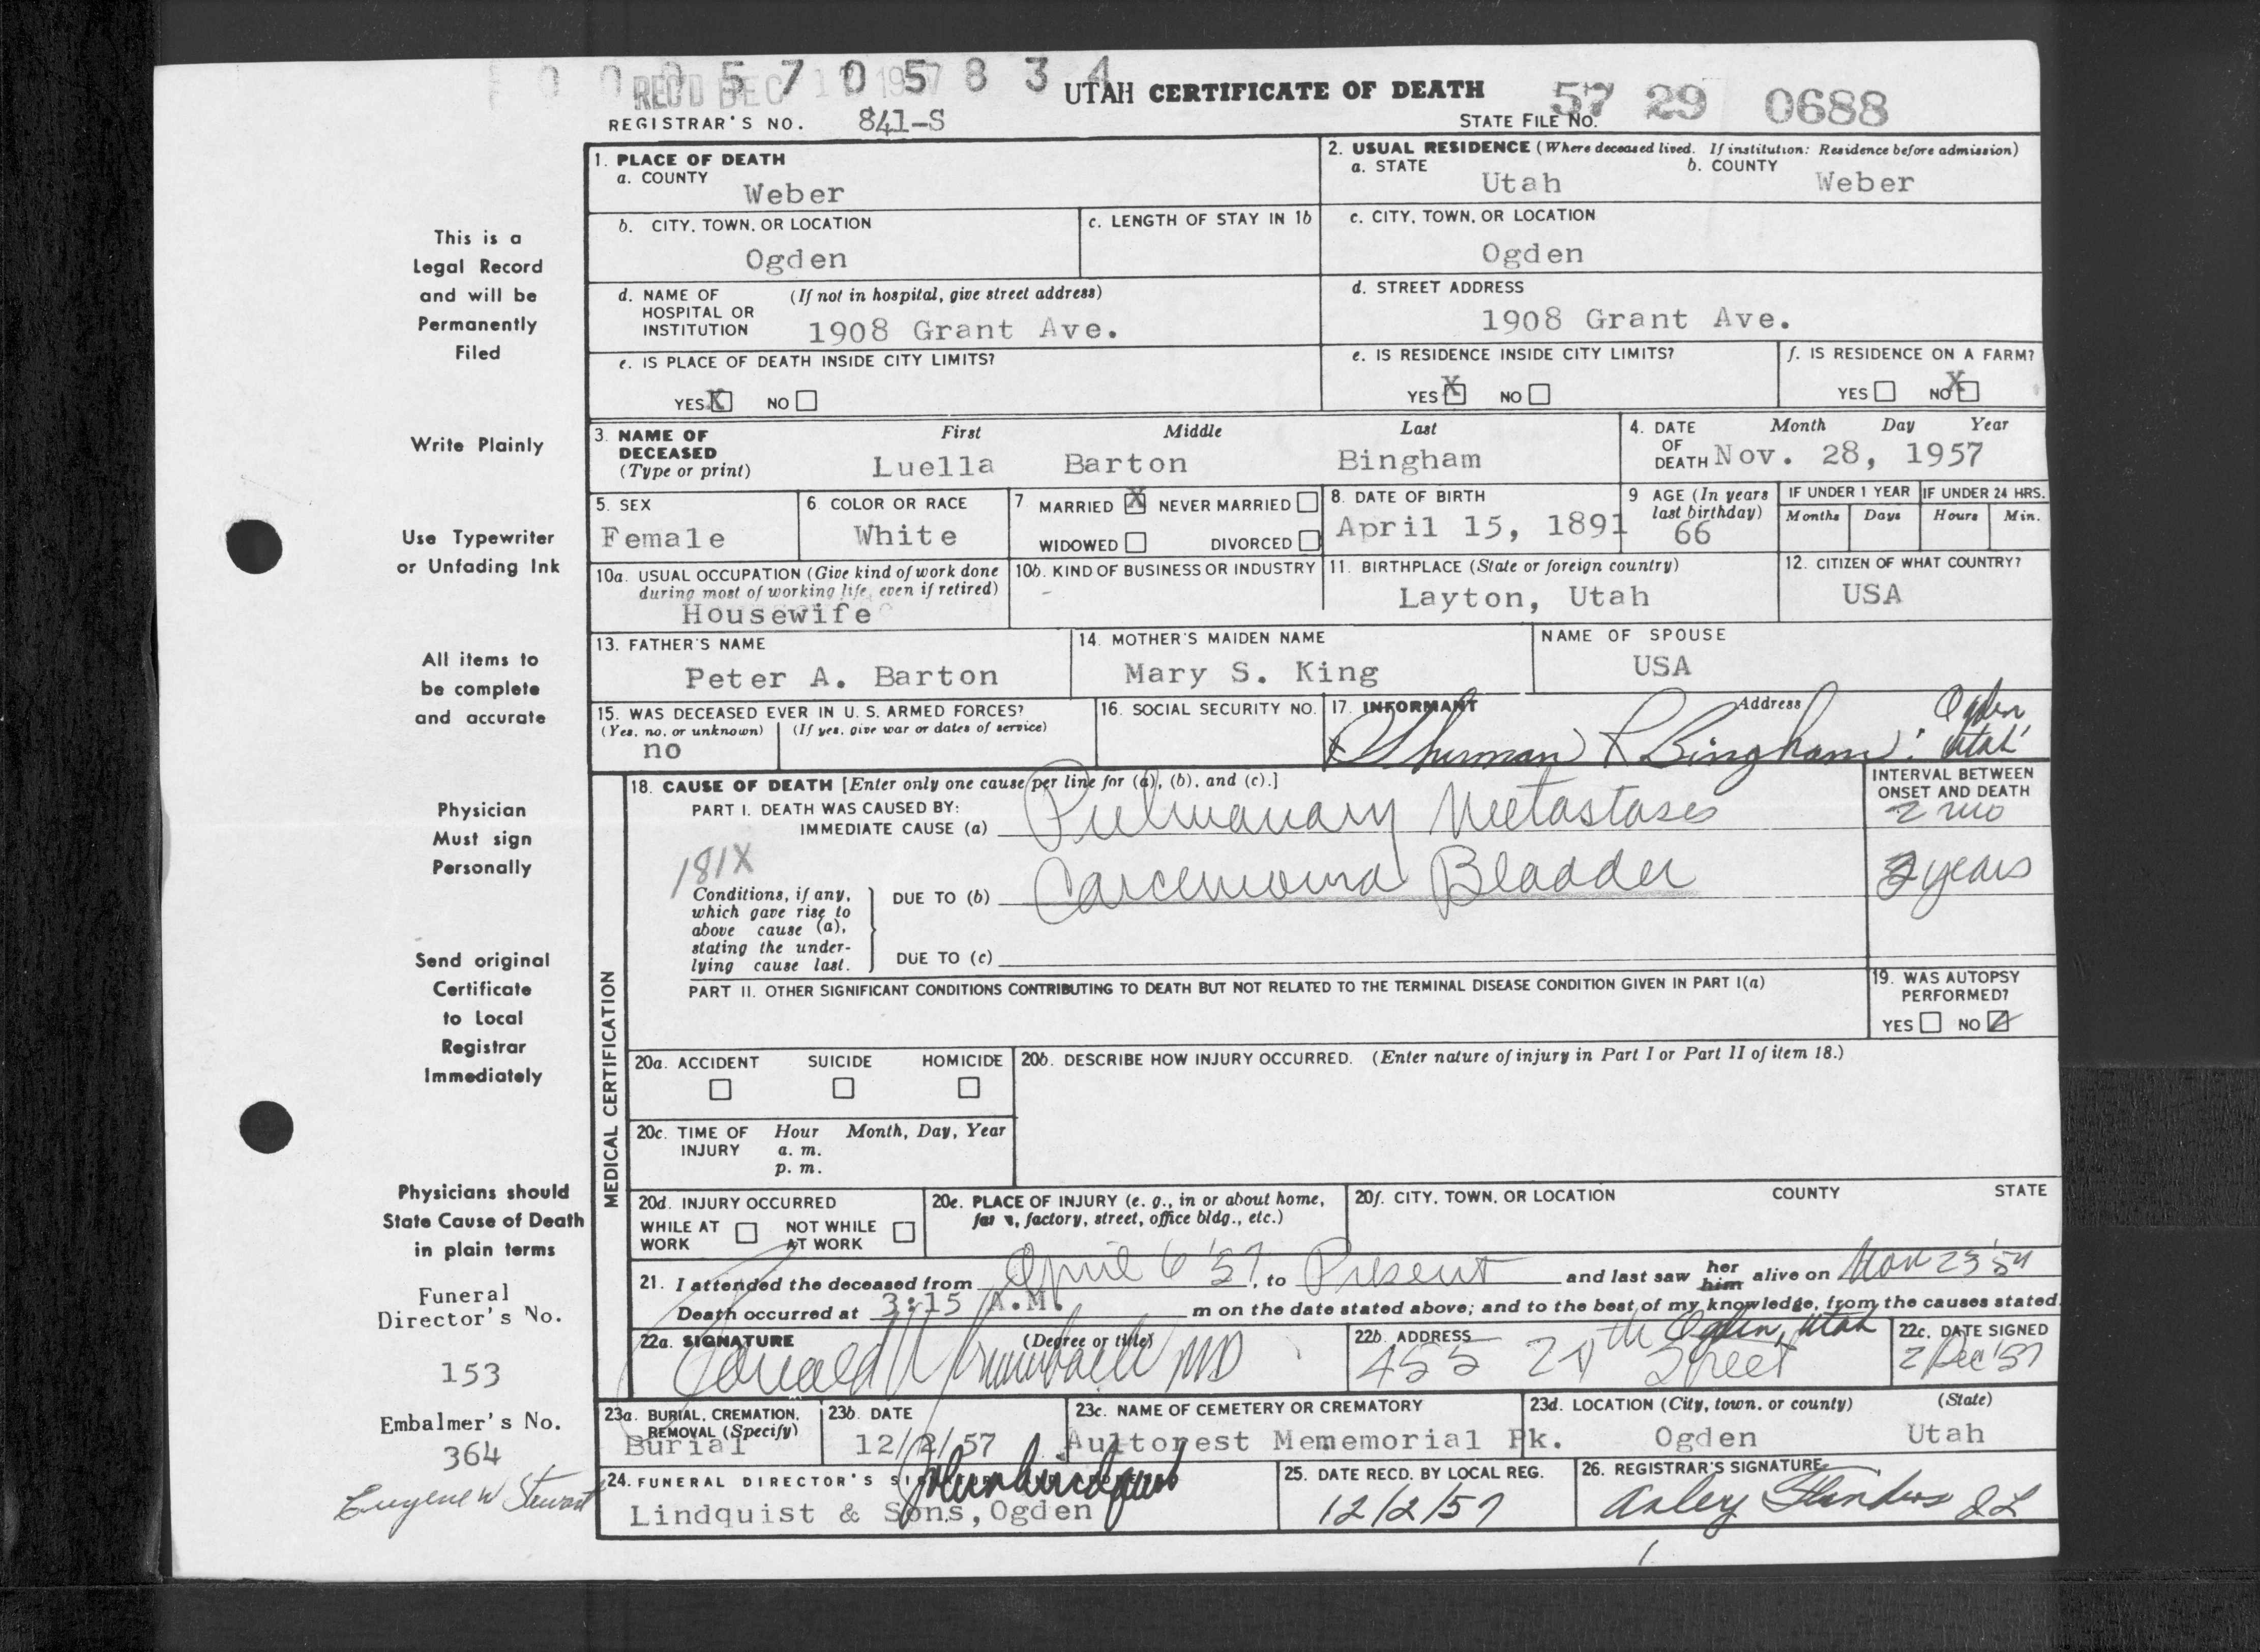 0 0 0 5 7 0 5 8 3 4
REC'D DEC 1957
UTAH CERTIFICATE OF DEATH
57 29 0688
REGISTRAR'S NO. 841-S
STATE FILE NO.
1. PLACE OF DEATH
a. COUNTY
Weber
2. USUAL RESIDENCE (Where deceased lived. If institution: Residence before admission)
a. STATE Utah
b. COUNTY Weber
b. CITY, TOWN, OR LOCATION
Ogden
c. LENGTH OF STAY IN 1b
c. CITY, TOWN, OR LOCATION
Ogden
d. NAME OF HOSPITAL OR INSTITUTION (If not in hospital, give street address)
1908 Grant Ave.
d. STREET ADDRESS
1908 Grant Ave.
e. IS PLACE OF DEATH INSIDE CITY LIMITS?
YES X NO
e. IS RESIDENCE INSIDE CITY LIMITS?
YES X NO
f. IS RESIDENCE ON A FARM?
YES NO X
3. NAME OF DECEASED (Type or print)
First Middle Last
Luella Barton Bingham
4. DATE OF DEATH
Month Day Year
Nov. 28, 1957
5. SEX
Female
6 COLOR OR RACE
White
7 MARRIED X NEVER MARRIED
WIDOWED DIVORCED
8. DATE OF BIRTH
April 15, 1891
9 AGE (In years last birthday)
66
IF UNDER 1 YEAR
Months Days
IF UNDER 24 HRS.
Hours Min.
10a. USUAL OCCUPATION (Give kind of work done during most of working life, even if retired)
Housewife
10b. KIND OF BUSINESS OR INDUSTRY
-
11. BIRTHPLACE (State or foreign country)
Layton, Utah
12. CITIZEN OF WHAT COUNTRY?
USA
13. FATHER'S NAME
Peter A. Barton
14. MOTHER'S MAIDEN NAME
Mary S. King
NAME OF SPOUSE
USA
15. WAS DECEASED EVER IN U. S. ARMED FORCES?
(Yes, no, or unknown) (If yes, give war or dates of service)
no
16. SOCIAL SECURITY NO.
17. INFORMANT Address
x Sherman R Bingham: Ogden Utah
MEDICAL CERTIFICATION
18. CAUSE OF DEATH [Enter only one cause per line for (a), (b), and (c).]
INTERVAL BETWEEN ONSET AND DEATH
PART I. DEATH WAS CAUSED BY:
IMMEDIATE CAUSE (a) Pulmanary Metastases 2 mo
181X
Conditions, if any, which gave rise to above cause (a), stating the underlying cause last.
DUE TO (b) Carcenoma Bladder 2 years
DUE TO (c)
PART II. OTHER SIGNIFICANT CONDITIONS CONTRIBUTING TO DEATH BUT NOT RELATED TO THE TERMINAL DISEASE CONDITION GIVEN IN PART I(a)
19. WAS AUTOPSY PERFORMED?
YES NO
20a. ACCIDENT SUICIDE HOMICIDE
20b. DESCRIBE HOW INJURY OCCURRED. (Enter nature of injury in Part I or Part II of item 18.)
20c. TIME OF INJURY
Hour Month, Day, Year
a. m.
p. m.
20d. INJURY OCCURRED
WHILE AT WORK NOT WHILE AT WORK
20e. PLACE OF INJURY (e. g., in or about home, farm, factory, street, office bldg., etc.)
20f. CITY, TOWN, OR LOCATION COUNTY STATE
21. I attended the deceased from April 6 '57, to Present and last saw her him alive on Nov 23 '57
Death occurred at 3:15 A.M. m on the date stated above; and to the best of my knowledge, from the causes stated.
22a. SIGNATURE (Degree or title)
MD
22b. ADDRESS
455 24th Street Ogden, Utah
22c. DATE SIGNED
2 Dec '57
23a. BURIAL, CREMATION, REMOVAL (Specify)
Burial
23b. DATE
12/2/57
23c. NAME OF CEMETERY OR CREMATORY
Aultorest Mememorial Pk.
23d. LOCATION (City, town, or county) (State)
Ogden Utah
24. FUNERAL DIRECTOR'S
Lindquist & Sons, Ogden
25. DATE RECD. BY LOCAL REG.
12/2/57
26. REGISTRAR'S SIGNATURE
This is a
Legal Record
and will be
Permanently
Filed
Write Plainly
Use Typewriter
or Unfading Ink
All items to
be complete
and accurate
Physician
Must sign
Personally
Send original
Certificate
to Local
Registrar
Immediately
Physicians should
State Cause of Death
in plain terms
Funeral
Director's No.
153
Embalmer's No.
364
Eugene W Stewart